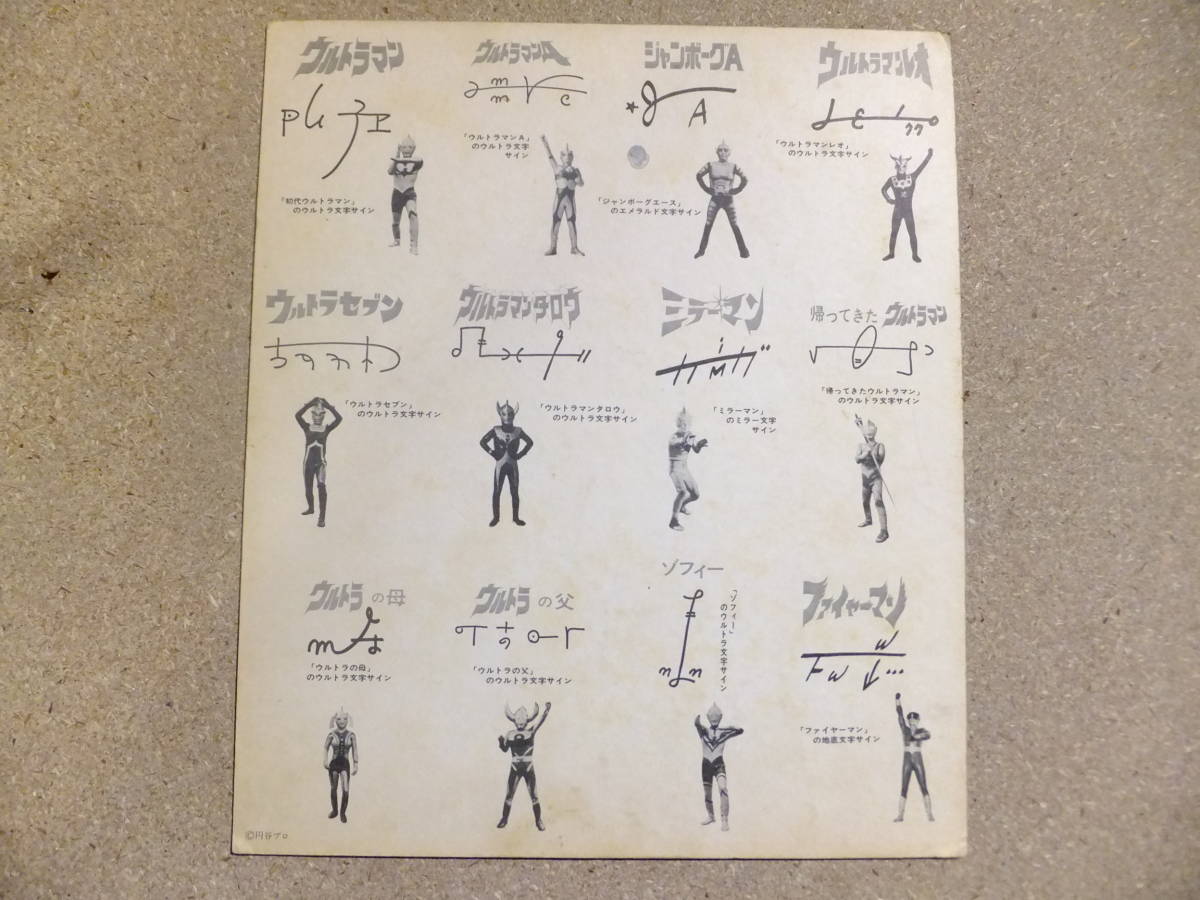 ウルトラマン
「初代ウルトラマン」
のウルトラ文字サイン
ウルトラマンA
「ウルトラマンA」
のウルトラ文字
サイン
ジャンボーグA
A
「ジャンボーグエース」
のエメラルド文字サイン
ウルトラマンレオ
「ウルトラマンレオ」
のウルトラ文字サイン
ウルトラセブン
「ウルトラセブン」
のウルトラ文字サイン
ウルトラマンタロウ
「ウルトラマンタロウ」
のウルトラ文字サイン
ミラーマン
「ミラーマン」
のミラー文字
サイン
帰ってきたウルトラマン
「帰ってきたウルトラマン」
のウルトラ文字サイン
ウルトラの母
「ウルトラの母」
のウルトラ文字サイン
ウルトラの父
「ウルトラの父」
のウルトラ文字サイン
ゾフィー
「ゾフィー」
のウルトラ文字サイン
ファイヤーマン
「ファイヤーマン」
の地底文字サイン
©円谷プロ